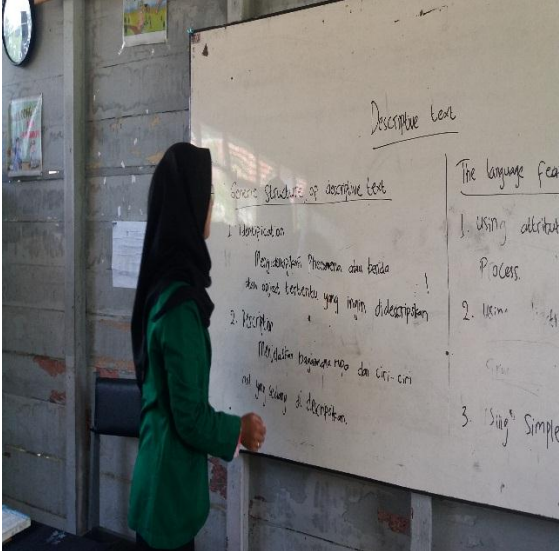 Descriptive text
Generic structure of descriptive text
1. Identification
Mengidentifikasi Phenomena atau benda
atau object tertentu yang ingin dideskripsikan
2. Description
Menjelaskan bagaimana rupa dan ciri-ciri
yang sedang di deskripsikan.
The language fea
1. Using attribut
Process.
2. Using
3. "Sing" Simple